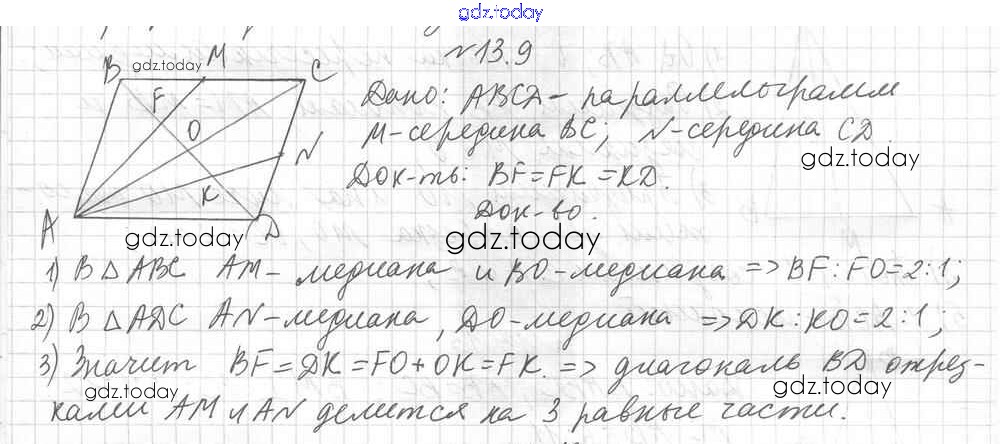 gdz.today
№13.9
B gdz.today M C
F
O
N
K
A D
Дано: ABCD - параллелограмм
M-середина BC; N-середина CD.
gdz.today
Док-ть: BF=FK=KD.
Док-во.
gdz.today gdz.today
1) В △ABC AM-медиана и BO-медиана => BF:FO=2:1;
2) В △ADC AN-медиана, DO-медиана => DK:KO=2:1;
3) Значит BF=DK=FO+OK=FK. => диагональ BD отрез-
gdz.today gdz.today
ками AM и AN делится на 3 равные части.